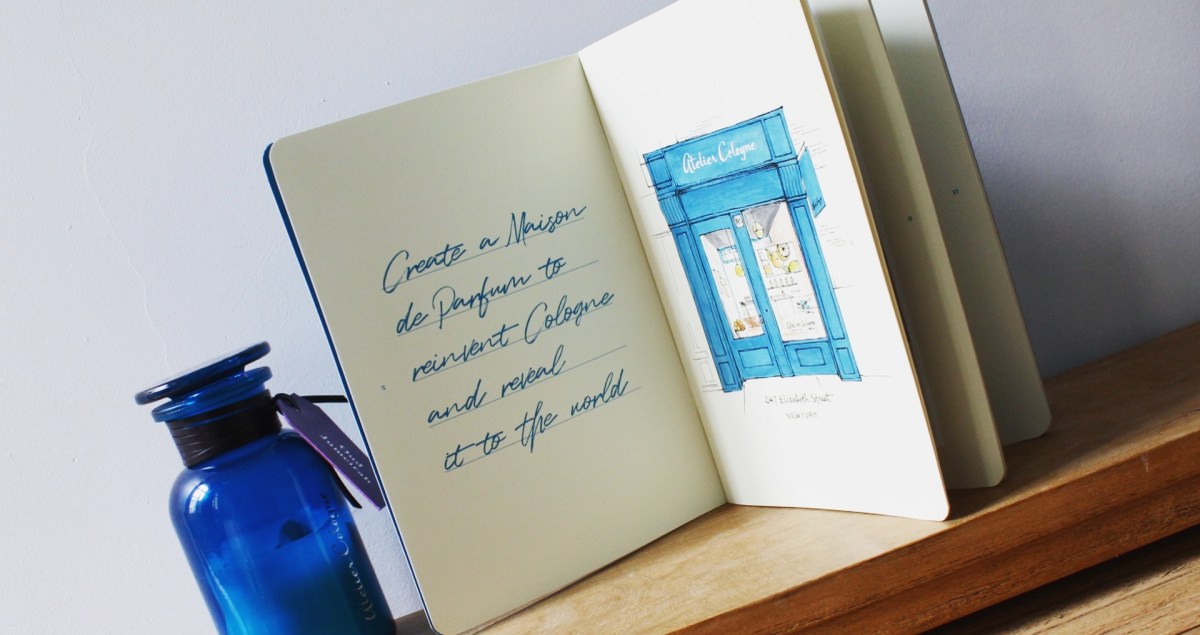 Create a Maison
de Parfum to
reinvent Cologne
and reveal
it to the world
Atelier Cologne
247 Elizabeth Street
NEW YORK
Atelier Cologne